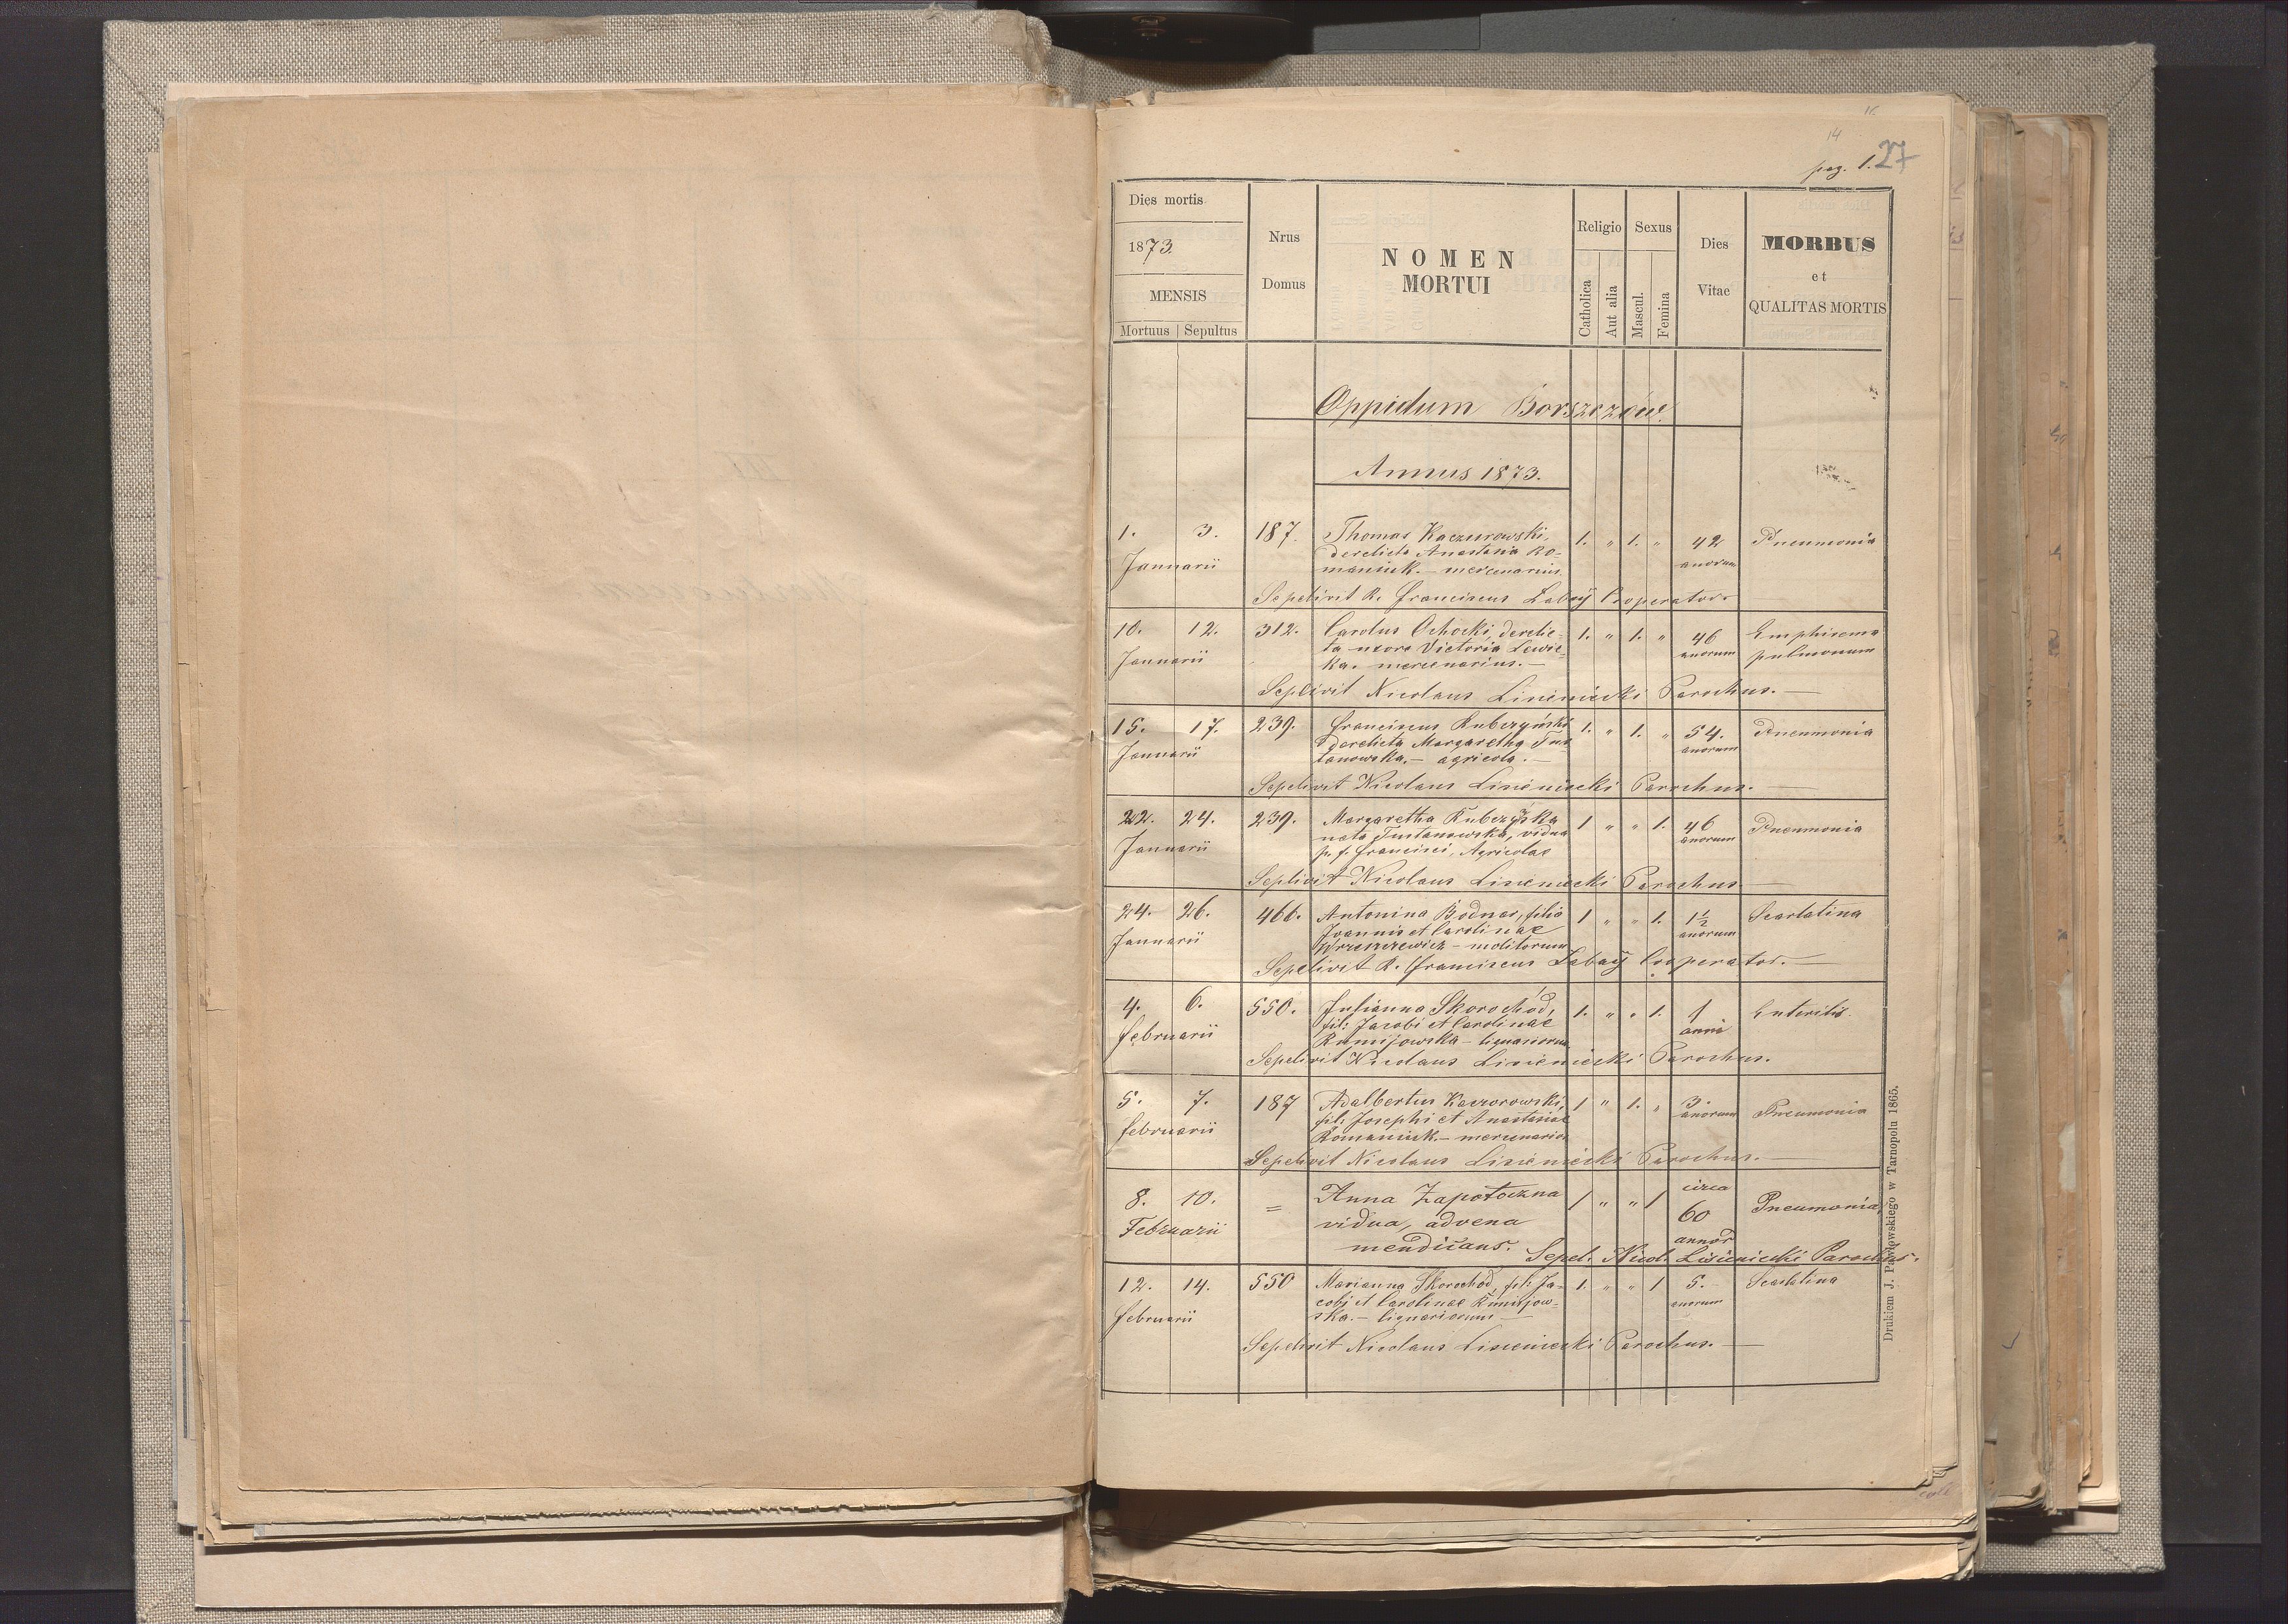 14
pag. 1. 27
Dies mortis
1873.
MENSIS
Mortuus | Sepultus
Nrus
Domus
NOMEN
MORTUI
Religio
Catholica
Aut alia
Sexus
Mascul.
Femina
Dies
Vitae
MORBUS
et
QUALITAS MORTIS
Oppidum Borszczów.
Annus 1873.
1. 3. 187. Thomas Kaczurowski, 1. " 1. " 42 Pneumonia
Januarii derelicta Anastasia Ro- anorum
maniuk. – mercenarius.
Sepelivit R. Franciscus Labaÿ Cooperator.
10. 12. 312. Carolus Ochocki, derelic- 1. " 1. " 46 Emphisema
Januarii ta uxore Victoria Lewic- anorum pulmonum
ka. mercenarius. –
Seplivit Nicolaus Lisieniecki Parochus. –
15. 17. 239. Franciscus Rubczyński 1. " 1. " 54. Pneumonia
Januarii derelicta Margaretha Tus anorum
tanowska. – agricola. –
Sepelivit Nicolaus Lisieniecki Parochus. –
22. 24. 239. Margaretha Rubczyńska 1 " " 1. 46 Pneumonia
Januarii nata Tustanowska, vidua anorum
p. f. Francisci, Agricolae
Seplivit Nicolaus Lisieniecki Parochus –
24. 26. 466. Antonina Bodnar, filia 1 " " 1. 1½ Scarlatina
Januarii Joannis et Carolinae anorum
Wrzeszczewicz – molitorum
Sepelivit R. Franciscus Labaÿ Cooperator. –
4. 6. 550. Julianna Skorochód, 1. " " 1. 1 Enteritis.
Februarii fil: Jacobi et Carolinae anni
Rumijowska – lignariorum
Sepelivit Nicolaus Lisieniecki Parochus.
5. 7. 187 Adalbertus Kaczorowski, 1 " 1. " 3. Pneumonia
Februarii fil: Josephi et Anastasiae anorum
Romaniuk. – mercenarior
Sepelivit Nicolaus Lisieniecki Parochus. –
8. 10. = Anna Zapotoczna 1 " " 1 circa 60 Pneumonia
Februarii vidua, advena annor
mendicans. Sepel. Nicol. Lisieniecki Parochus.
12. 14. 550 Marianna Skorochód, fil: Ja- 1. " " 1 5. Scarlatina
Februarii cobi et Carolinae Rumijow- anorum
ska. – lignariorum –
Sepelivit Nicolaus Lisieniecki Parochus. –
Drukiem J. Pawłowskiego w Tarnopolu 1865.